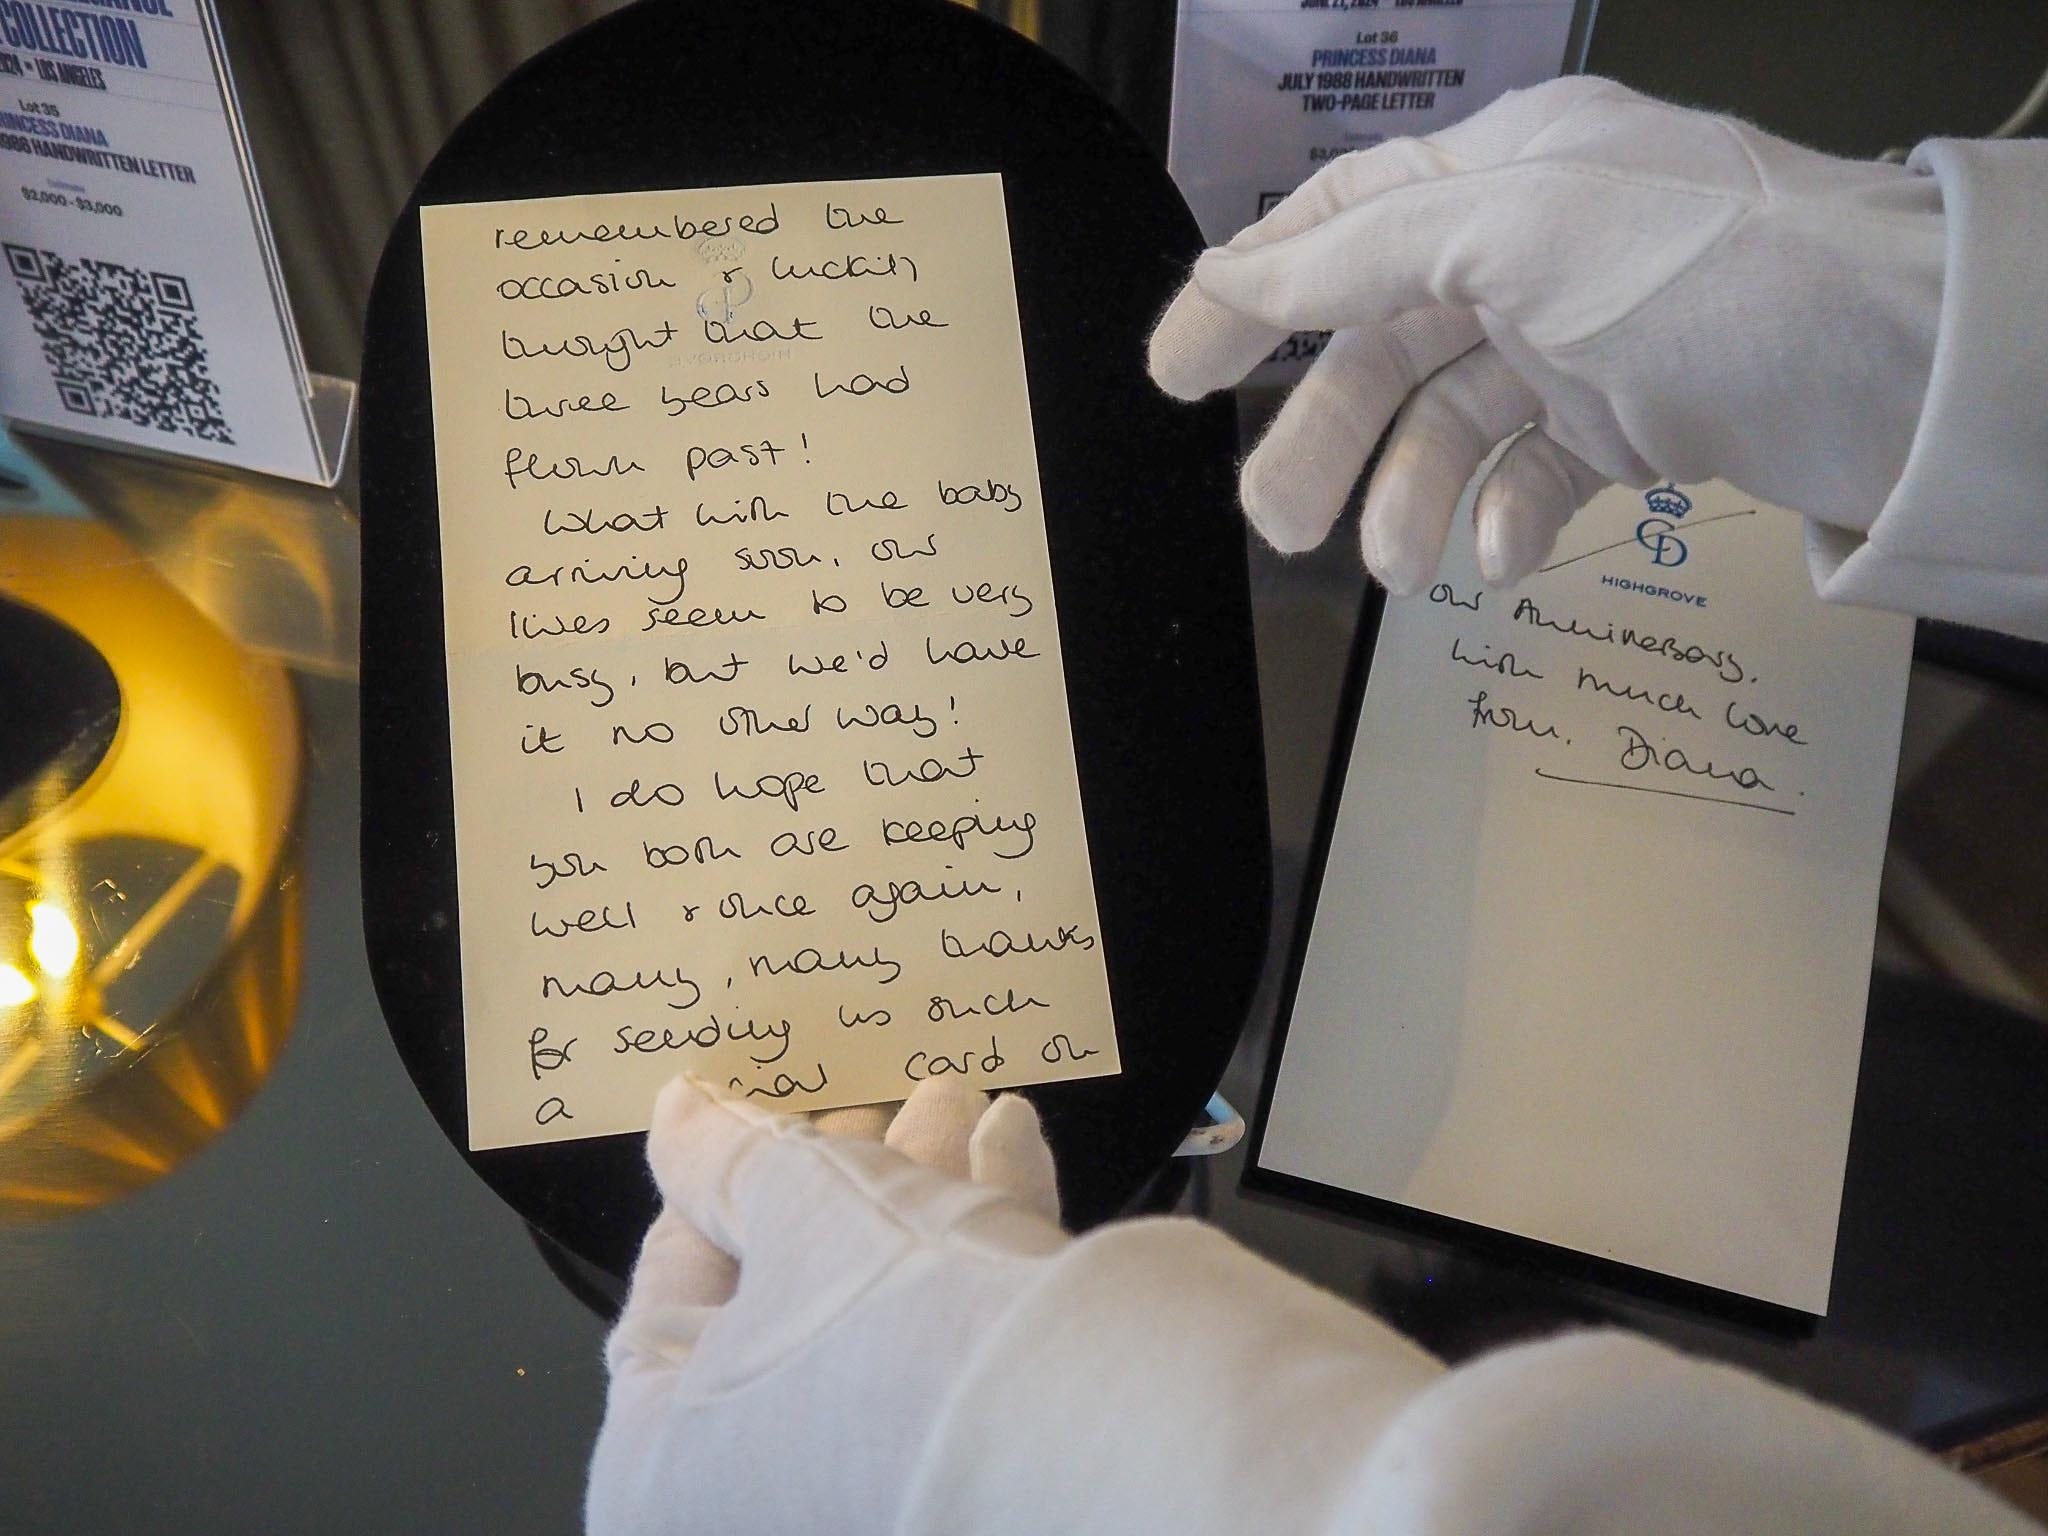 COLLECTION
LOS ANGELES
Lot 35
PRINCESS DIANA
HANDWRITTEN LETTER
Estimate
$2,000 - $3,000
JUNE 27, 2024 LOS ANGELES
Lot 36
PRINCESS DIANA
JULY 1988 HANDWRITTEN
TWO-PAGE LETTER
Estimate
remembered the
occasion & luckily
thought that the
HIGHGROVE
three years had
flown past!
What with the baby
arriving soon, our
lives seem to be very
busy, but we'd have
it no other way!
I do hope that
you both are keeping
well & once again,
many, many thanks
for sending us such
a card on
CD
HIGHGROVE
our Anniversary.
With much love
from. Diana.